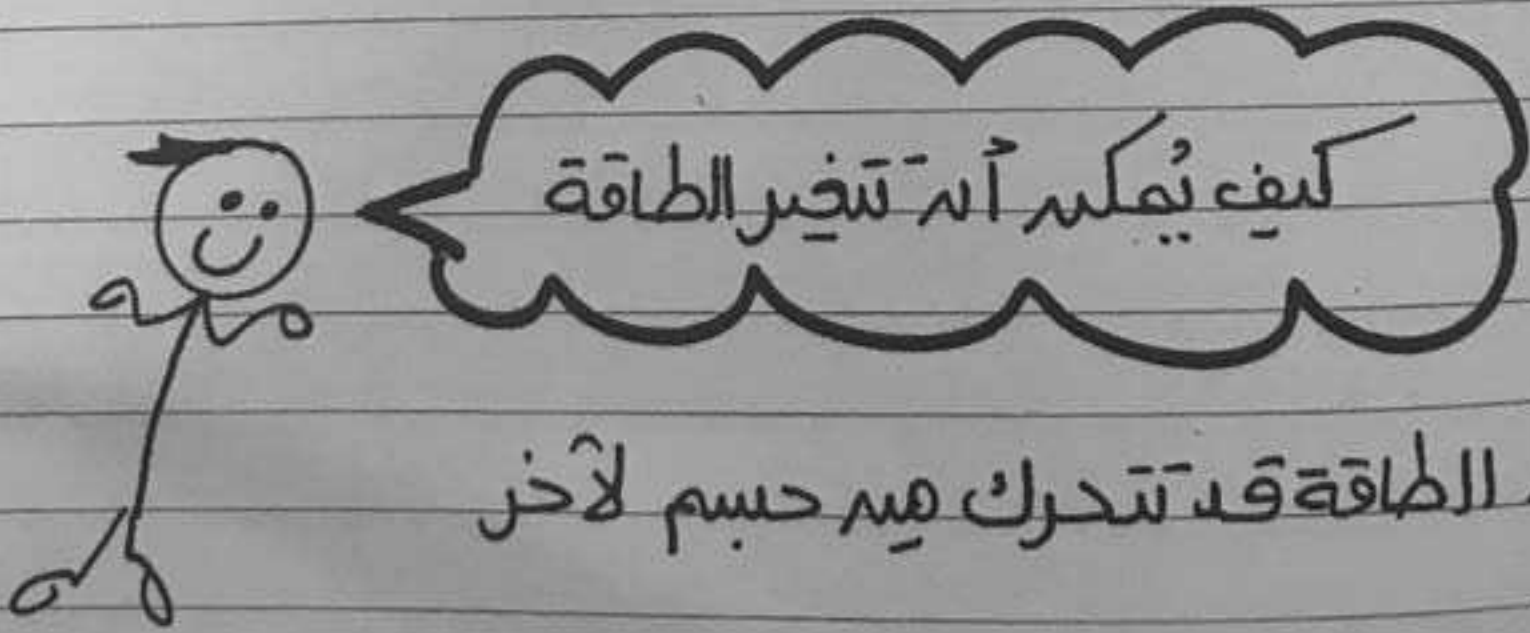 كيف يُمكن أن تتغير الطاقة
الطاقة قد تتحرك من جسم لآخر